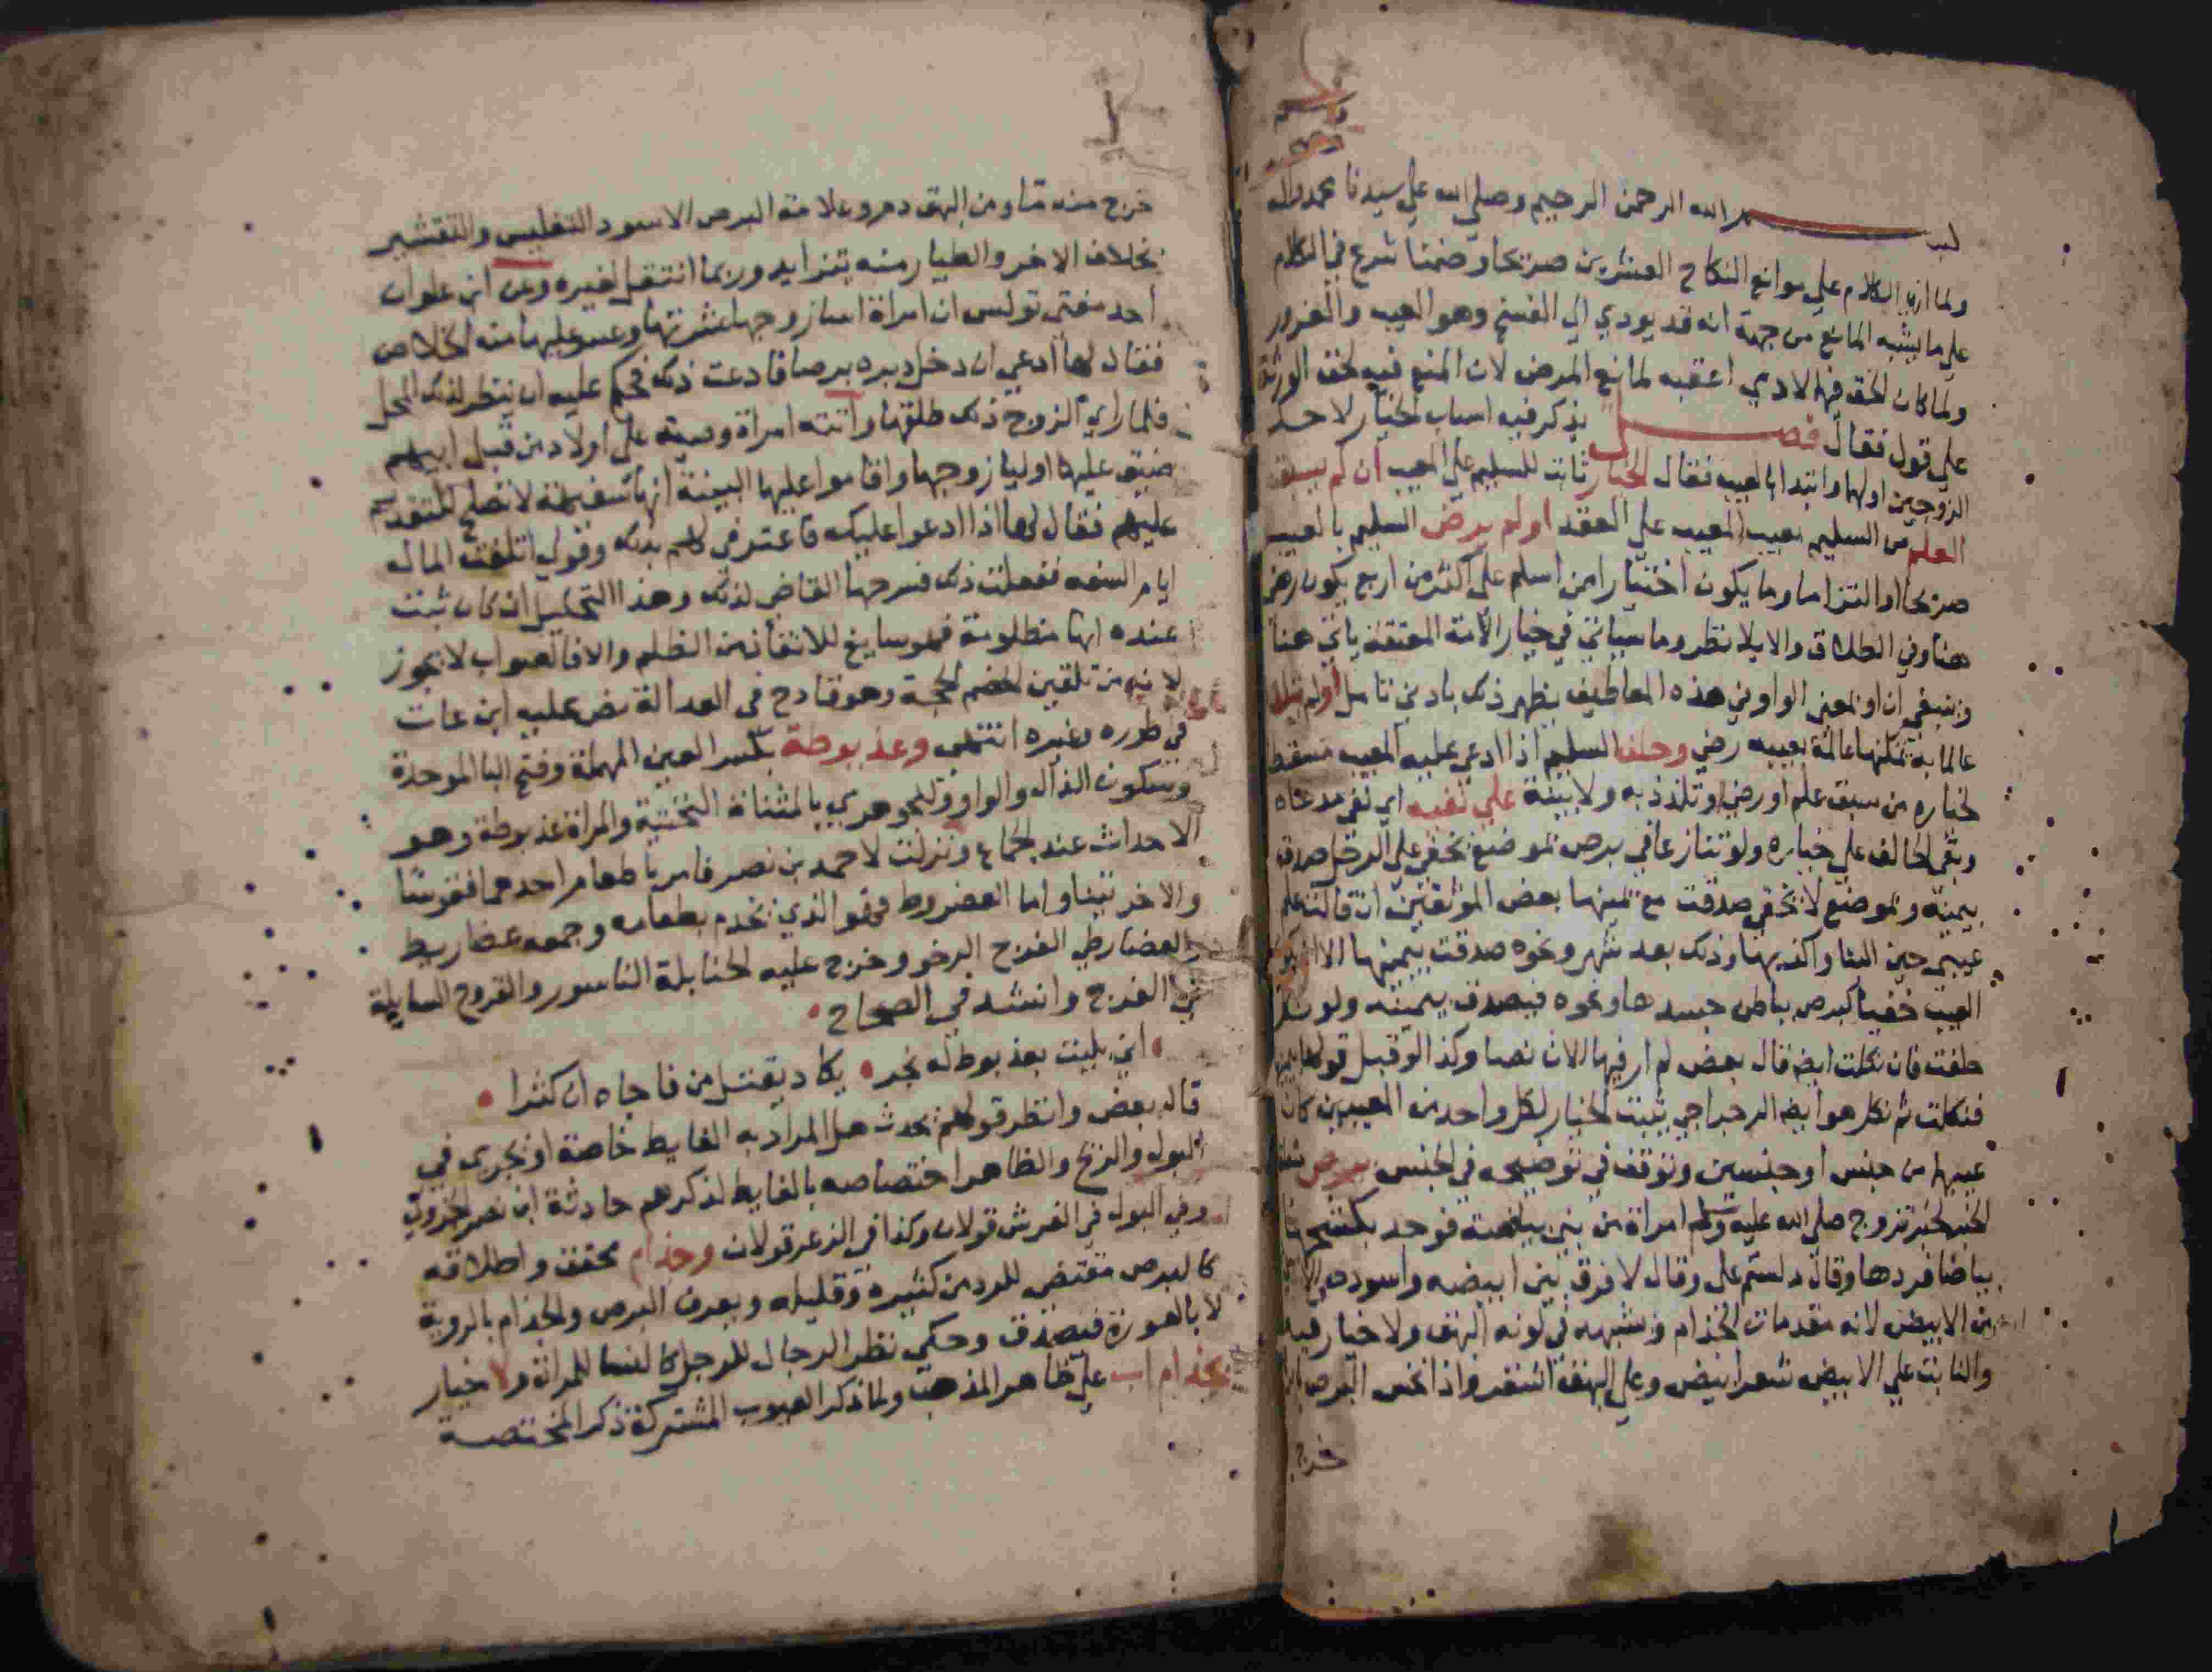 بسم الله الرحمن الرحيم وصلي الله علي سيدنا محمد واله
ولما الكلام علي موانع النكاح العشرين صريحا وضمنا شرع في الكلام
علي ما يشبه المانع من جهة انه قد يودي الي الفسخ وهو العيب والغرور
ولما كان الحق فيه لادمي اعقبه لمانع المرض لان المنع فيه لحق الورثة
علي قول فقال فصل يذكر فيه اسباب الخيار لاحد
الزوجين اولها وابتدا بالعيب فقال الخيار ثابت للسليم علي المعيب ان لم يسبق
العلم من السليم بعيب المعيب علي العقد او لم يرض السليم بالعيب
صريحا او التزاما وما يكون اختيارا من اسلم علي اكثر من اربع يكون رضي
هنا وفي الطلاق والايلا نظر وما سياتي في خيار الامة المعتقة ياتي هنا
وينبغي ان او بمعني الواو في هذه المعاطيف يظهر ذلك بادني تامل او لم يتلذذ
عالما به تمكينها عالمة بعيبه رضي وحلف السليم اذا ادعي عليه المعيب مسقط
لخياره من سبق علم او رضي او تلذذ به ولا بينة علي نفيه اي نفي مدعاه
وبقي الحالف علي خياره ولو تنازعا في برص بموضع يخفي علي الرجل صدق
بيمينه وبموضع لا يخفي صدقت مع يمينها بعض الموثقين ان قالت علم
عيبي حين البنا واكذبها وذلك بعد شهر ونحوه صدقت بيمينها الا ان يكون
العيب خفيا كبرص بباطن جسدها ونحوه فيصدق بيمينه ولو نكل
حلفت فان نكلت ايضا قال بعض لم ار فيها الان نصا وكذا لو قبل قولها
فنكلت ثم نكل هو ايضا الرجراجي يثبت الخيار لكل واحد من المعيبين كان
عيبهما من جنس او جنسين وتوقف في توضيحه في الجنس ببرص
لخبر تزوج صلي الله عليه وسلم امراة من بني بياضة فوجد بكشحها
بياضا فردها وقال دلستم علي وقال لا فرق بين ابيضه واسوده
من الابيض لانه مقدمات الجذام ويشبهه في لونه البهق ولا خيار فيه
والنابت علي الابيض شعر ابيض وعلي البهق اشقر واذا نخس البرص
خرج
خرج منه ما ومن البهق دم وعلامة البرص الاسود التفليس والتقشير
بخلاف الاخر والطيار منه يتزايد وربما انتقل لغيره وعن ابن علوان
احد مفتي تونس ان امراة اسا زوجها عشرتها وعسر عليها منه الخلاص
فقال لها ادعي ان دخل دبره برصا فادعت ذلك فحكم عليه ان ينظر لذلك المحل
فلما راي الزوج ذلك طلقها واتته امراة وصية علي اولاد من قبل ابيهم
ضيق عليها اوليا زوجها واقاموا عليها البينة انها سفيهة لا تصلح للتقدم
عليهم فقال لها اذا ادعوا عليك فاعترفي لهم بذلك وقولي اتلفت المال
ايام السفه ففعلت ذلك فسرحها القاضي لذلك وهذا التحليل ان كان ثبت
عنده انها مظلومة فهو سايغ للانقاذ من الظلم والا فالصواب لا يجوز
لانه من تلقين الخصم الحجة وهو قادح في العدالة نص عليه ابن عات
في طرره وغيره انتهي وعذيوطة بكسر العين المهملة وفتح اليا الموحدة
وسكون الذال والواو وللجوهري بالمثناة التحتية والمراة عذيوطة وهو
الاحداث عند الجماع ونزلت لاحمد بن نصر فامر باطعام احدهما فقوسا
والاخر تينا واما العضروط فهو الذي يخدم بطعامه وجمعه عضاريط
والعضارطي الفرج الرخو وخرج عليه الحنابلة الناسور والقروح السايلة
في الفرج وانشد في الصحاح
اني بليت بعذيوط له بخر يكاد يقتل من فاجاه ان كثرا
قال بعض وانظر قولهم يحدث هل المراد به الغايط خاصة او يجري في
البول والريح والظاهر اختصاصه بالغايط لذكرهم حادثة ابن نصر
وفي البول في الفرش قولان وكذا في الزعر قولان وجذام محقق واطلاقه
كالبرص مقتض للرد من كثيره وقليله ويعرف البرص والجذام بالروية
لا بالعورة فيصدق وحكي نظر الرجال للرجل كالنسا للمراة ولا خيار
بجذام اب علي ظاهر المذهب ولما ذكر العيوب المشتركة ذكر المختصة